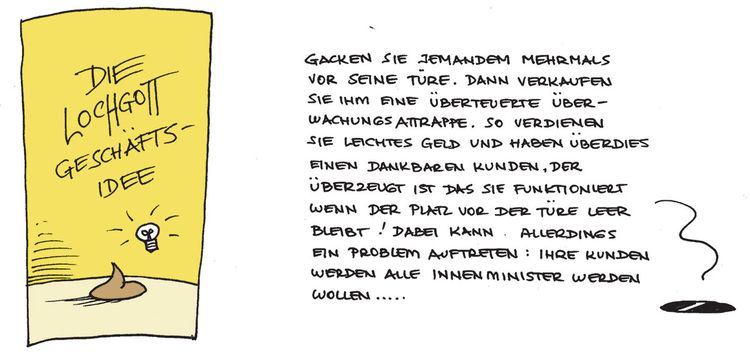 DIE
LOCHGOTT
GESCHÄFTS-
IDEE
GACKEN SIE JEMANDEM MEHRMALS
VOR SEINE TÜRE. DANN VERKAUFEN
SIE IHM EINE ÜBERTEUERTE ÜBER-
WACHUNGSATTRAPPE. SO VERDIENEN
SIE LEICHTES GELD UND HABEN ÜBERDIES
EINEN DANKBAREN KUNDEN, DER
ÜBERZEUGT IST DAS SIE FUNKTIONIERT
WENN DER PLATZ VOR DER TÜRE LEER
BLEIBT! DABEI KANN ALLERDINGS
EIN PROBLEM AUFTRETEN: IHRE KUNDEN
WERDEN ALLE INNENMINISTER WERDEN
WOLLEN.....